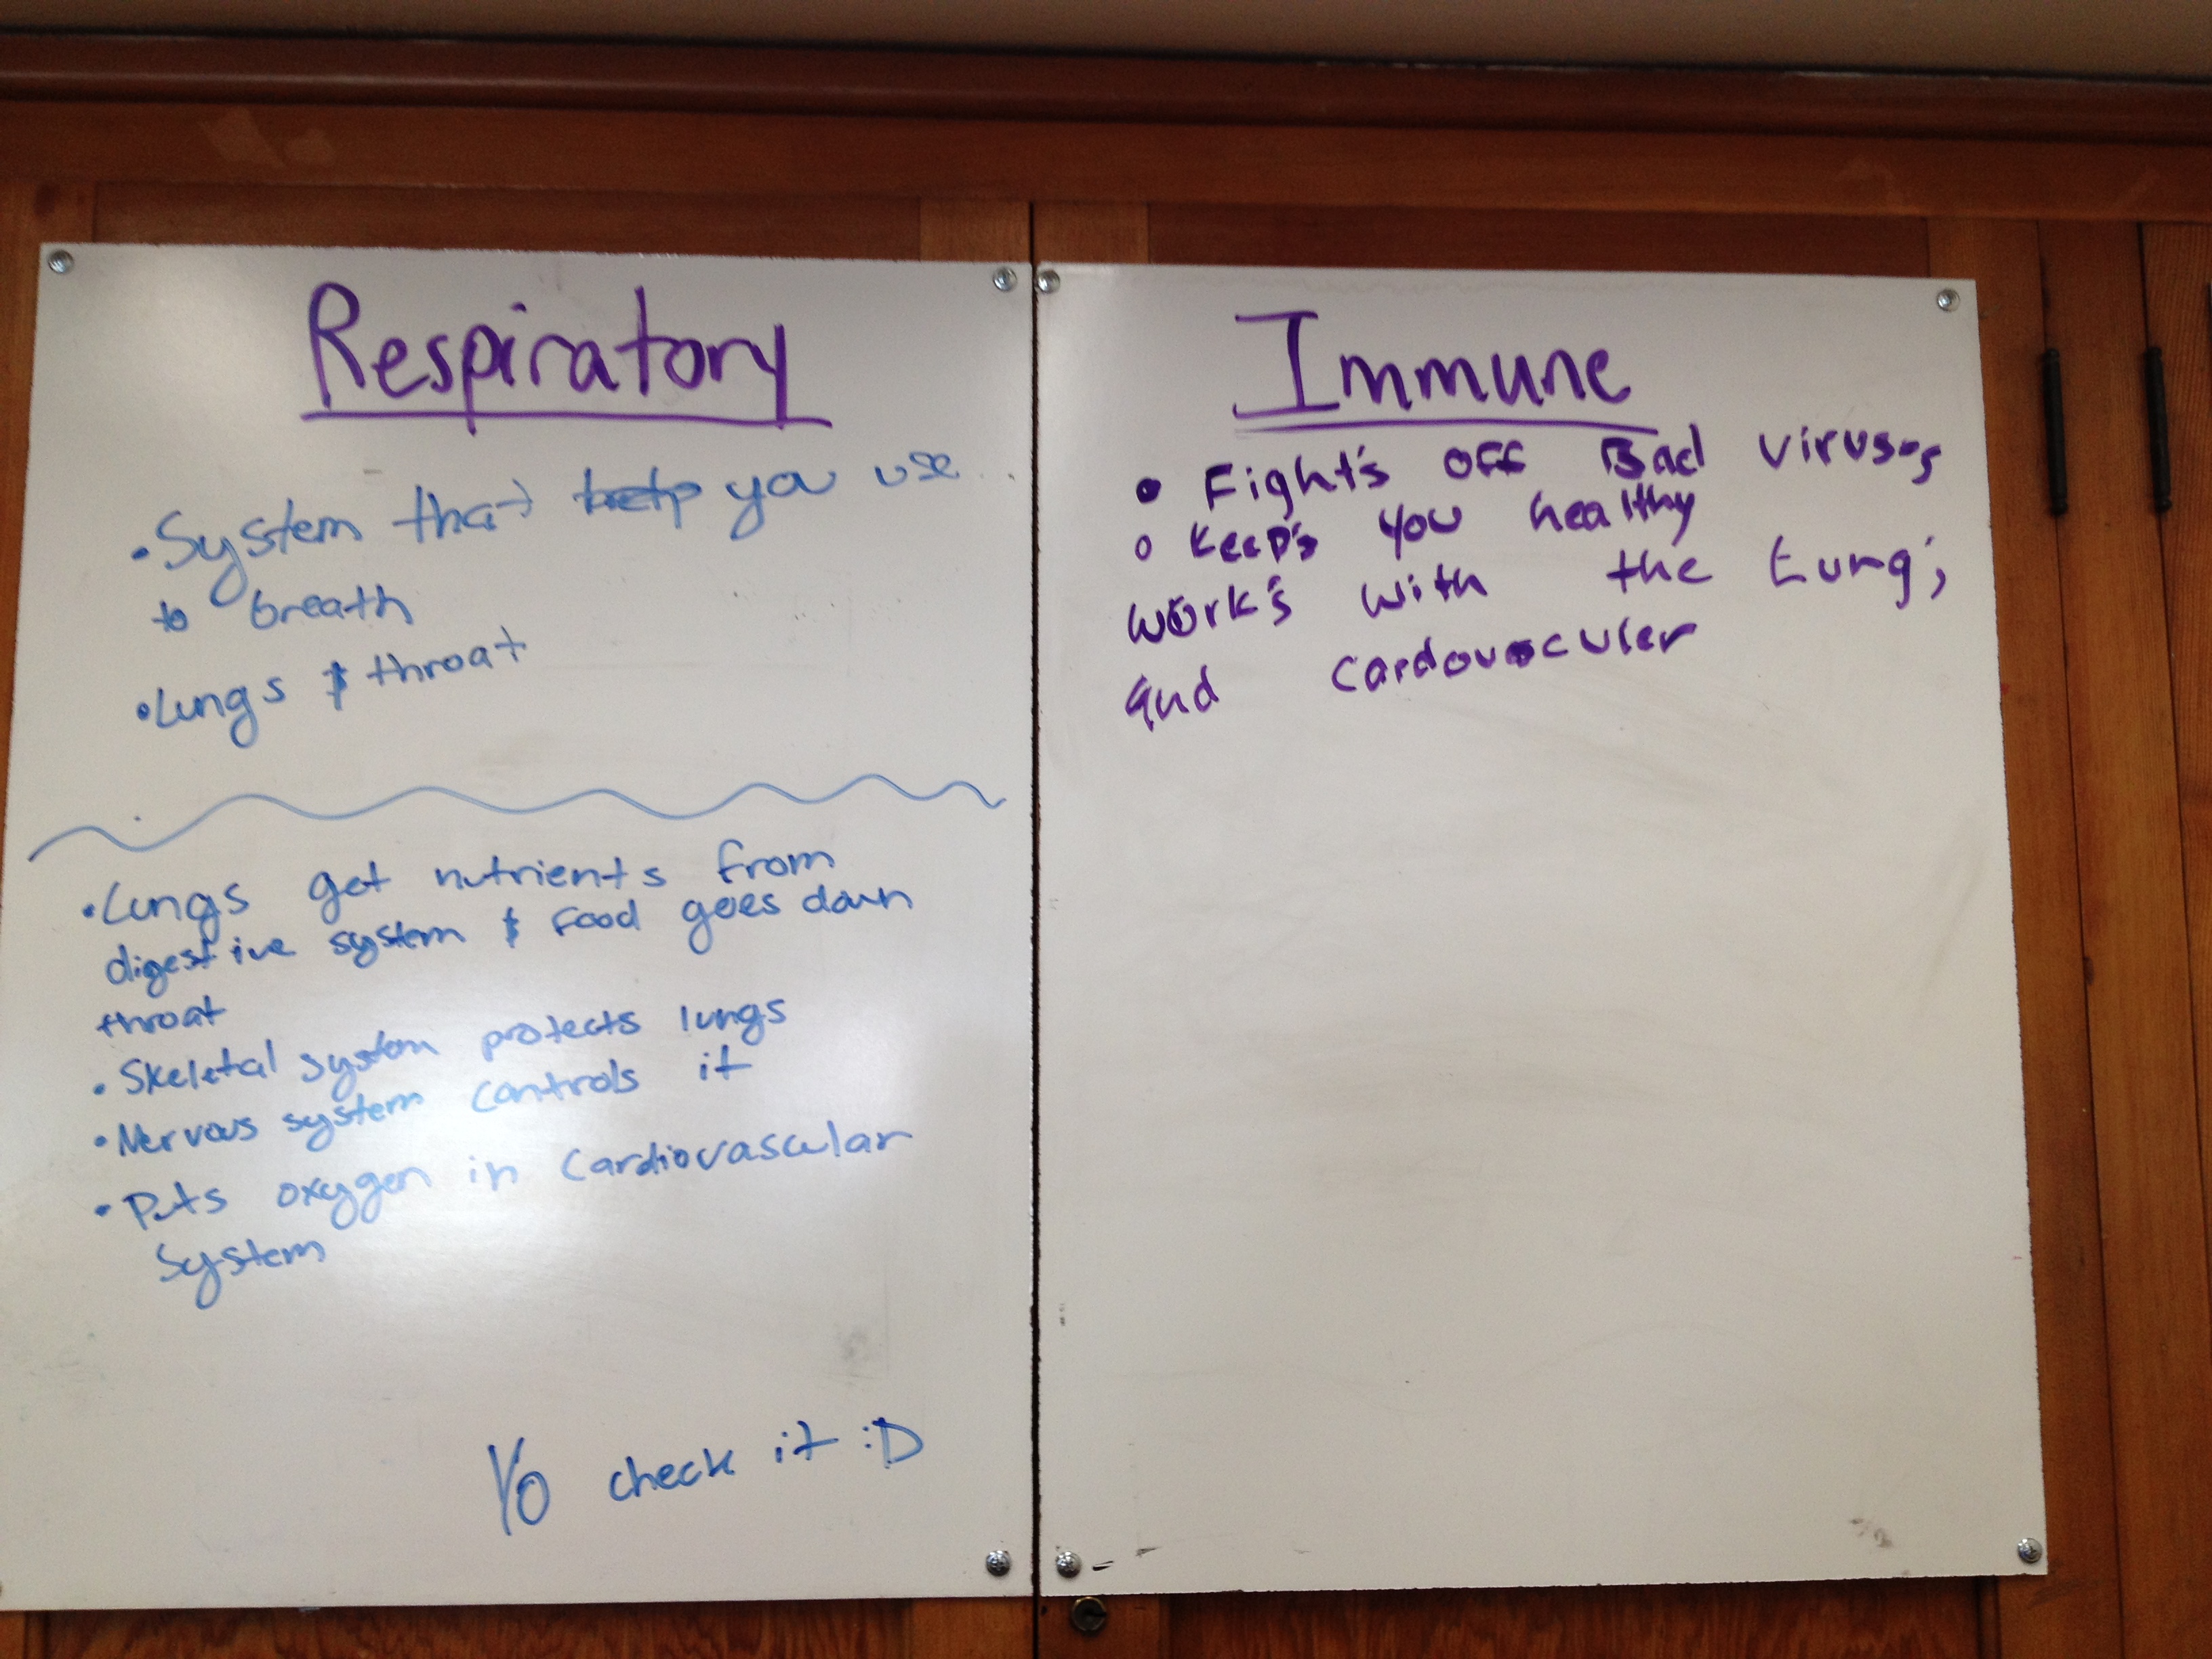 Respiratory
• System that help you use
to breath
• Lungs & throat
• Lungs get nutrients from
digestive system & food goes down
throat
• Skeletal system protects lungs
• Nervous system controls it
• Puts oxygen in cardiovascular
system
Yo check it :D
Immune
• Fight's off Bad viruses
o keep's you healthy
work's with the Lung's
and cardovscular